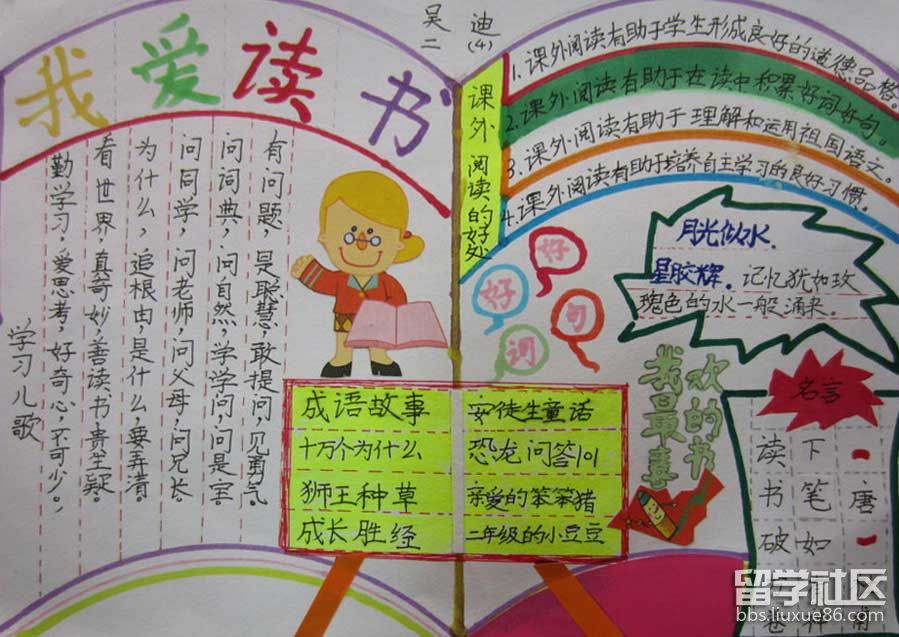 我爱读书
吴迪
二(4)
有问题,是聪慧,敢提问,见勇气
问词典,问自然,学学问,问是宝。
问同学,问老师,问父母,问兄长
为什么,追根由,是什么,要弄清
看世界,真奇妙,善读书,贵生疑
勤学习,爱思考,好奇心,不可少。
学习儿歌
课外阅读的好处
1.课外阅读有助于学生形成良好的道德品格。
2.课外阅读有助于在读中积累好词好句。
3.课外阅读有助于理解和运用祖国语文。
4.课外阅读有助于培养自主学习的良好习惯。
好词
好句
月光似水。
星胶辉。记忆犹如玫
瑰色的水一般涌来。
我最喜欢的书
成语故事
安徒生童话
十万个为什么
恐龙问答101
狮王种草
亲爱的笨笨猪
成长胜经
二年级的小豆豆
名言
读书破
下笔如
唐
留学社区
bbs.liuxue86.com